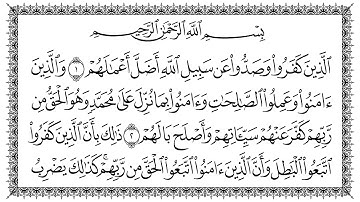 بِسْمِ ٱللَّهِ ٱلرَّحْمَٰنِ ٱلرَّحِيمِ
ٱلَّذِينَ كَفَرُوا۟ وَصَدُّوا۟ عَن سَبِيلِ ٱللَّهِ أَضَلَّ أَعْمَٰلَهُمْ ١ وَٱلَّذِينَ
ءَامَنُوا۟ وَعَمِلُوا۟ ٱلصَّٰلِحَٰتِ وَءَامَنُوا۟ بِمَا نُزِّلَ عَلَىٰ مُحَمَّدٍ وَهُوَ ٱلْحَقُّ مِن
رَّبِّهِمْ كَفَّرَ عَنْهُمْ سَيِّـَٔاتِهِمْ وَأَصْلَحَ بَالَهُمْ ٢ ذَٰلِكَ بِأَنَّ ٱلَّذِينَ كَفَرُوا۟
ٱتَّبَعُوا۟ ٱلْبَٰطِلَ وَأَنَّ ٱلَّذِينَ ءَامَنُوا۟ ٱتَّبَعُوا۟ ٱلْحَقَّ مِن رَّبِّهِمْ ۚ كَذَٰلِكَ يَضْرِبُ